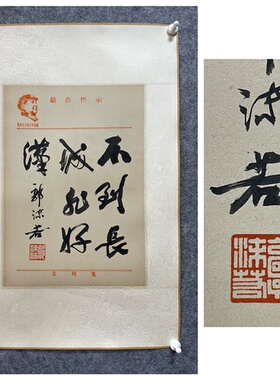 最高指示
不到長
城非好
漢
郭沫若
沫若